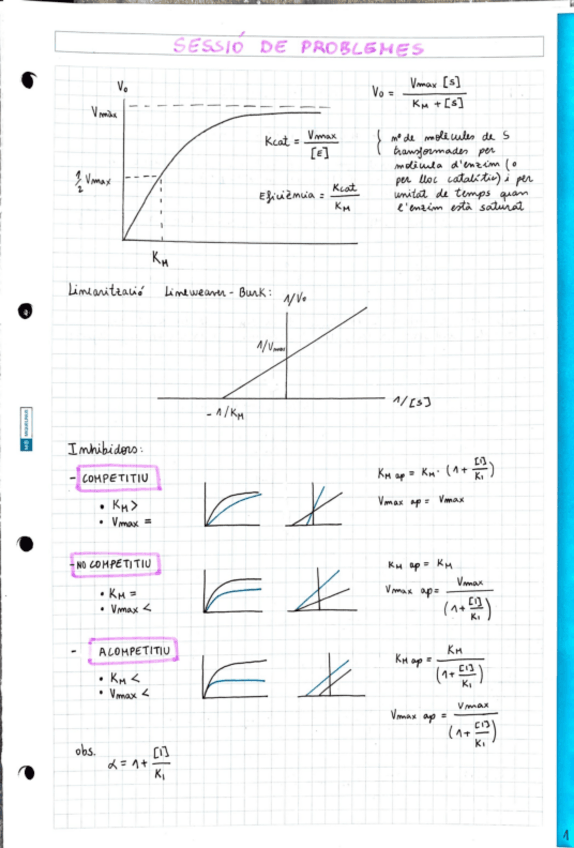 SESSIÓ DE PROBLEMES
V₀
Vmàx
½ Vmax
K_M
V₀ = Vmax [S] / K_M + [S]
Kcat = Vmax / [E]
{ nº de molècules de S
transformades per
molècula d'enzim (o
per lloc catalític) i per
unitat de temps quan
l'enzim està saturat
Eficiència = Kcat / K_M
Linearització Lineweaver - Burk:
1/V₀
1/Vmax
- 1/K_M
1/[S]
Inhibidors:
- COMPETITIU
• K_M >
• Vmax =
K_M ap = K_M · (1 + [I]/K_I)
Vmax ap = Vmax
- NO COMPETITIU
• K_M =
• Vmax <
K_M ap = K_M
Vmax ap = Vmax / (1 + [I]/K_I)
- ACOMPETITIU
• K_M <
• Vmax <
K_M ap = K_M / (1 + [I]/K_I)
Vmax ap = Vmax / (1 + [I]/K_I)
obs.
α = 1 + [I]/K_I
1